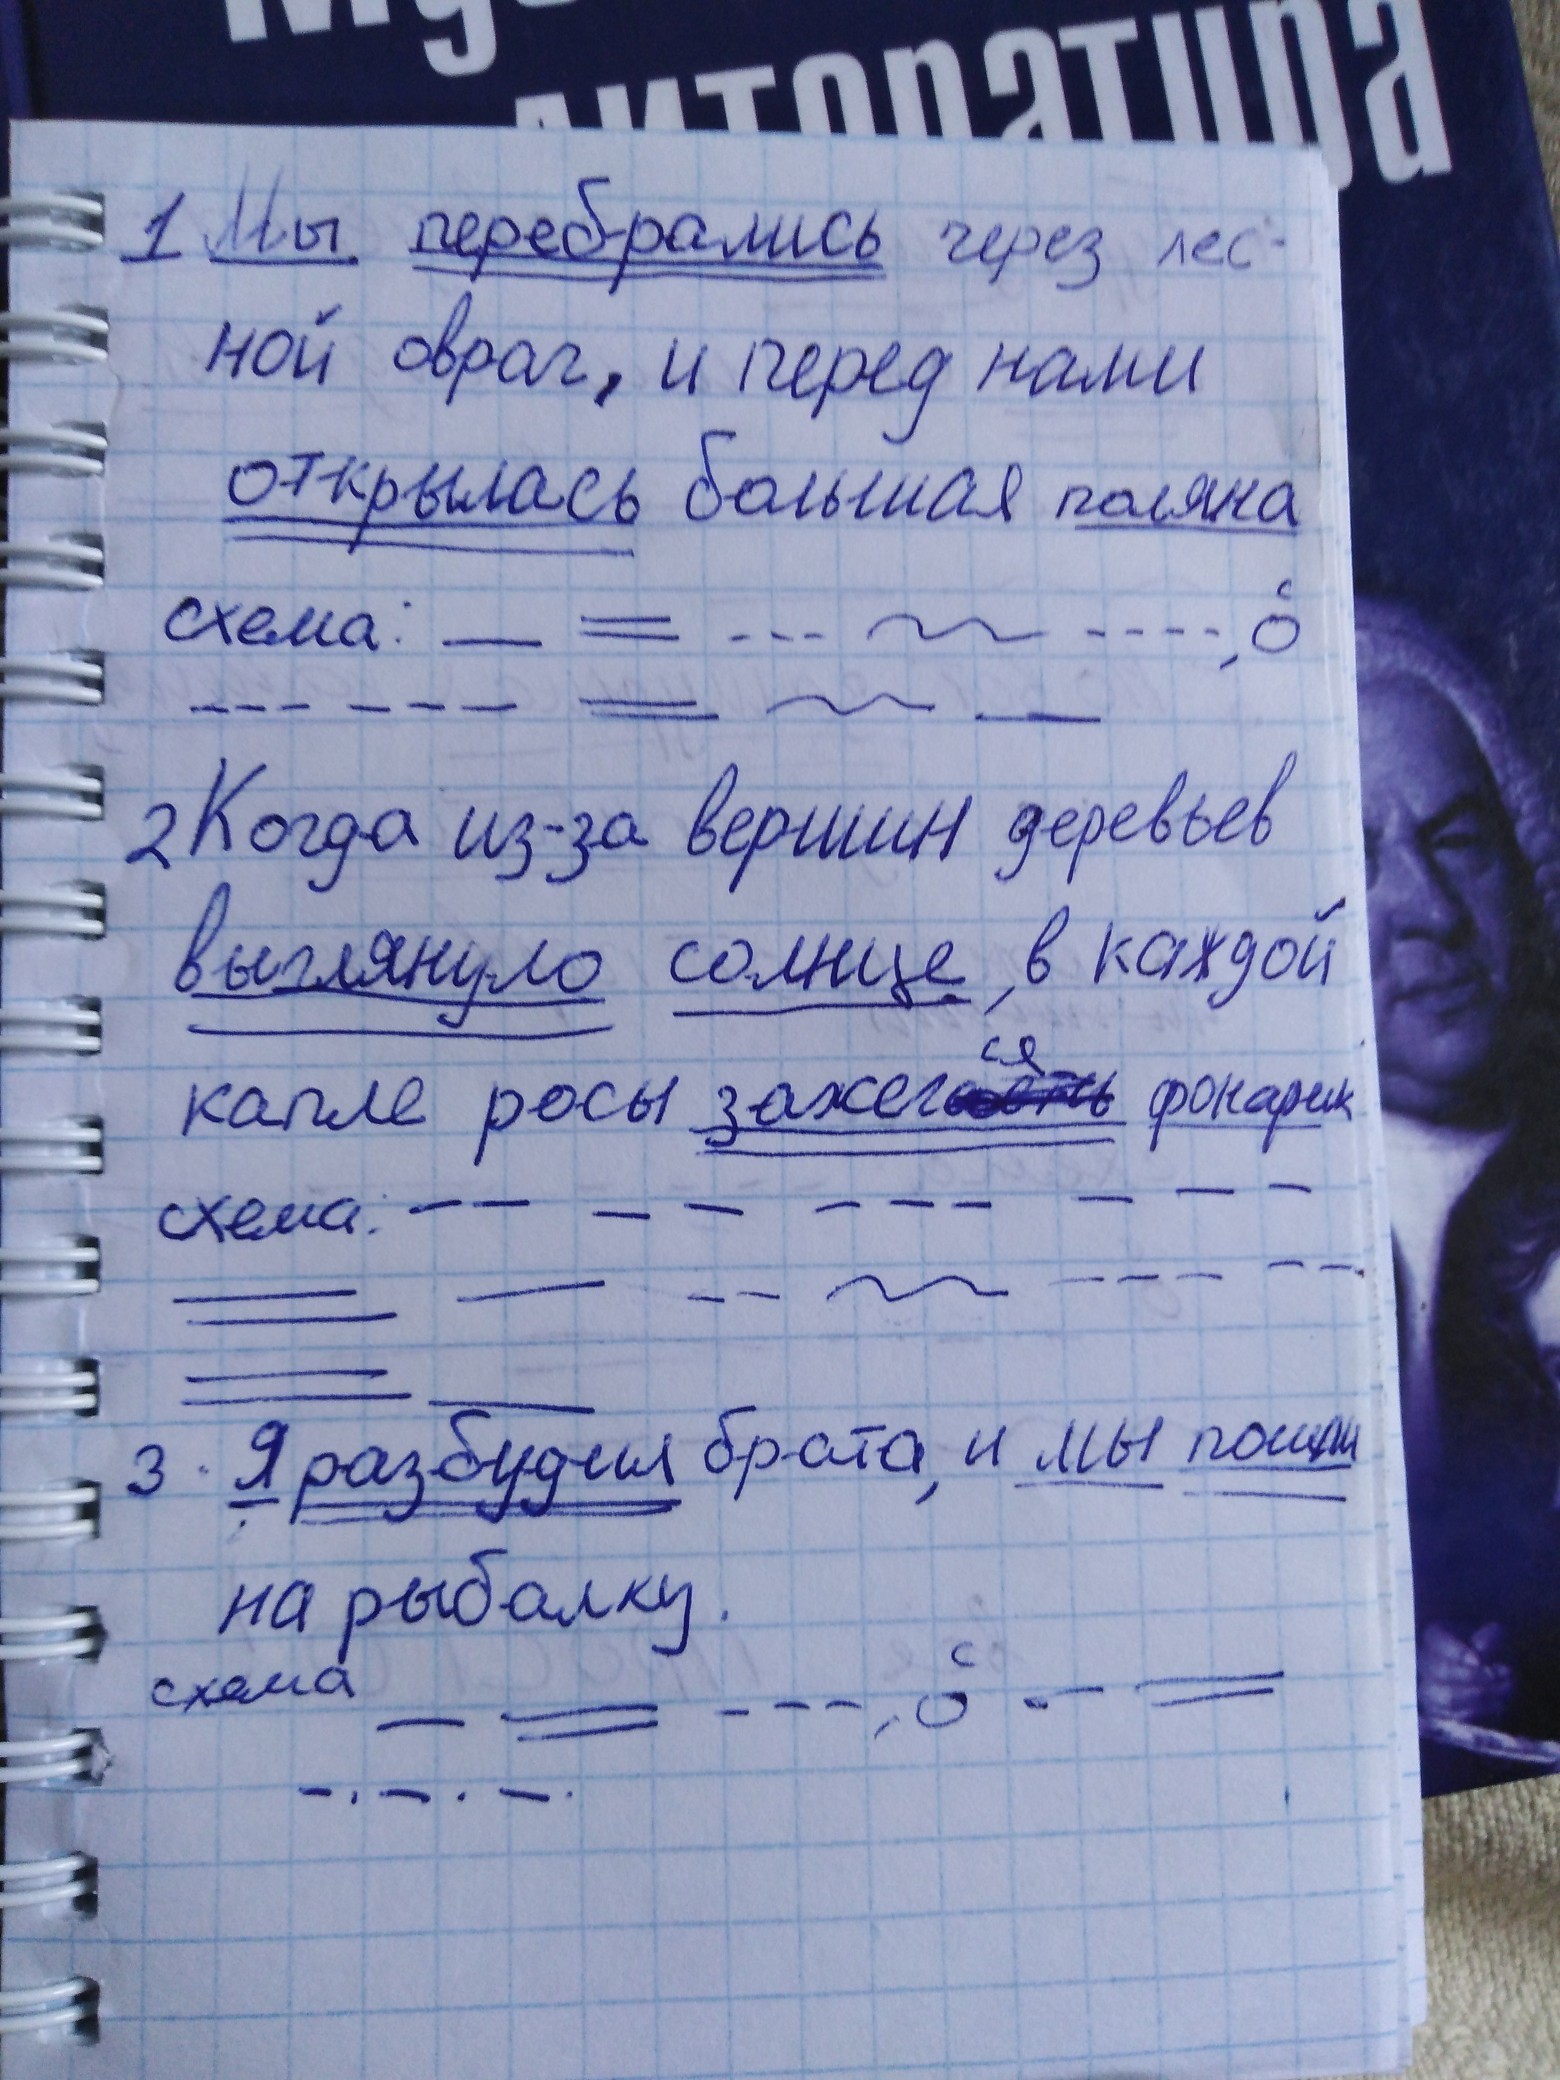 литература
1 Мы перебрались через лес-
ной овраг, и перед нами
открылась большая поляна
схема: , с
2 Когда из-за вершин деревьев
выглянуло солнце, в каждой
ся
капле росы зажег фонарик
схема:
3. Я разбудил брата, и мы пошли
на рыбалку.
схема , с